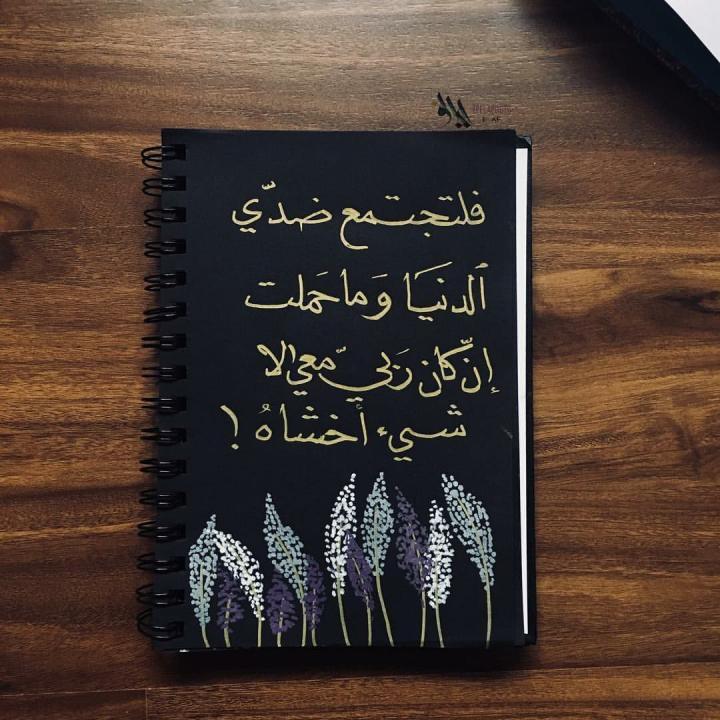 فلتجتمع ضدّي
ٱلدنيَا وَما حَملت
إن كان رَبيّ معي لا
شيء أخشاهُ !